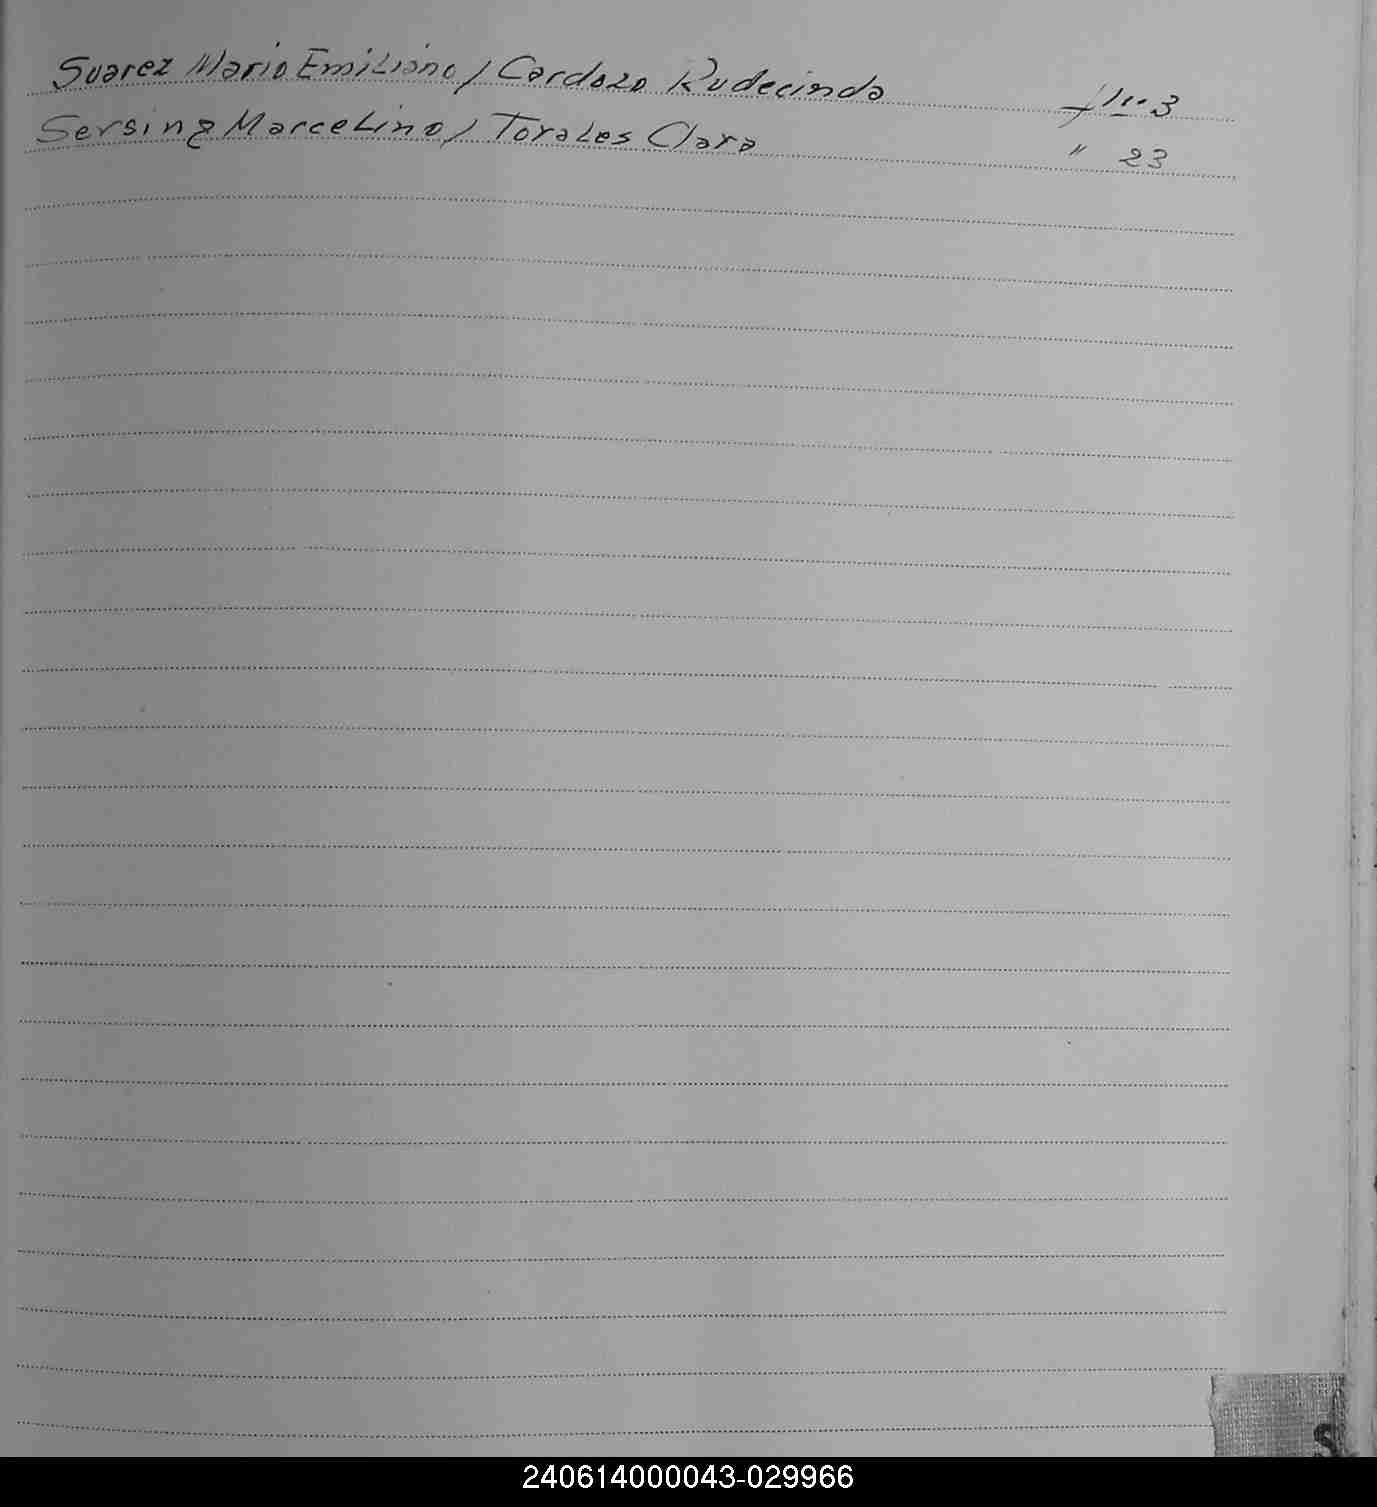 Suarez Mario Emiliano / Cardozo Rudecinda flio 3
Sersing Marcelino / Torales Clara " 23
S
240614000043-029966